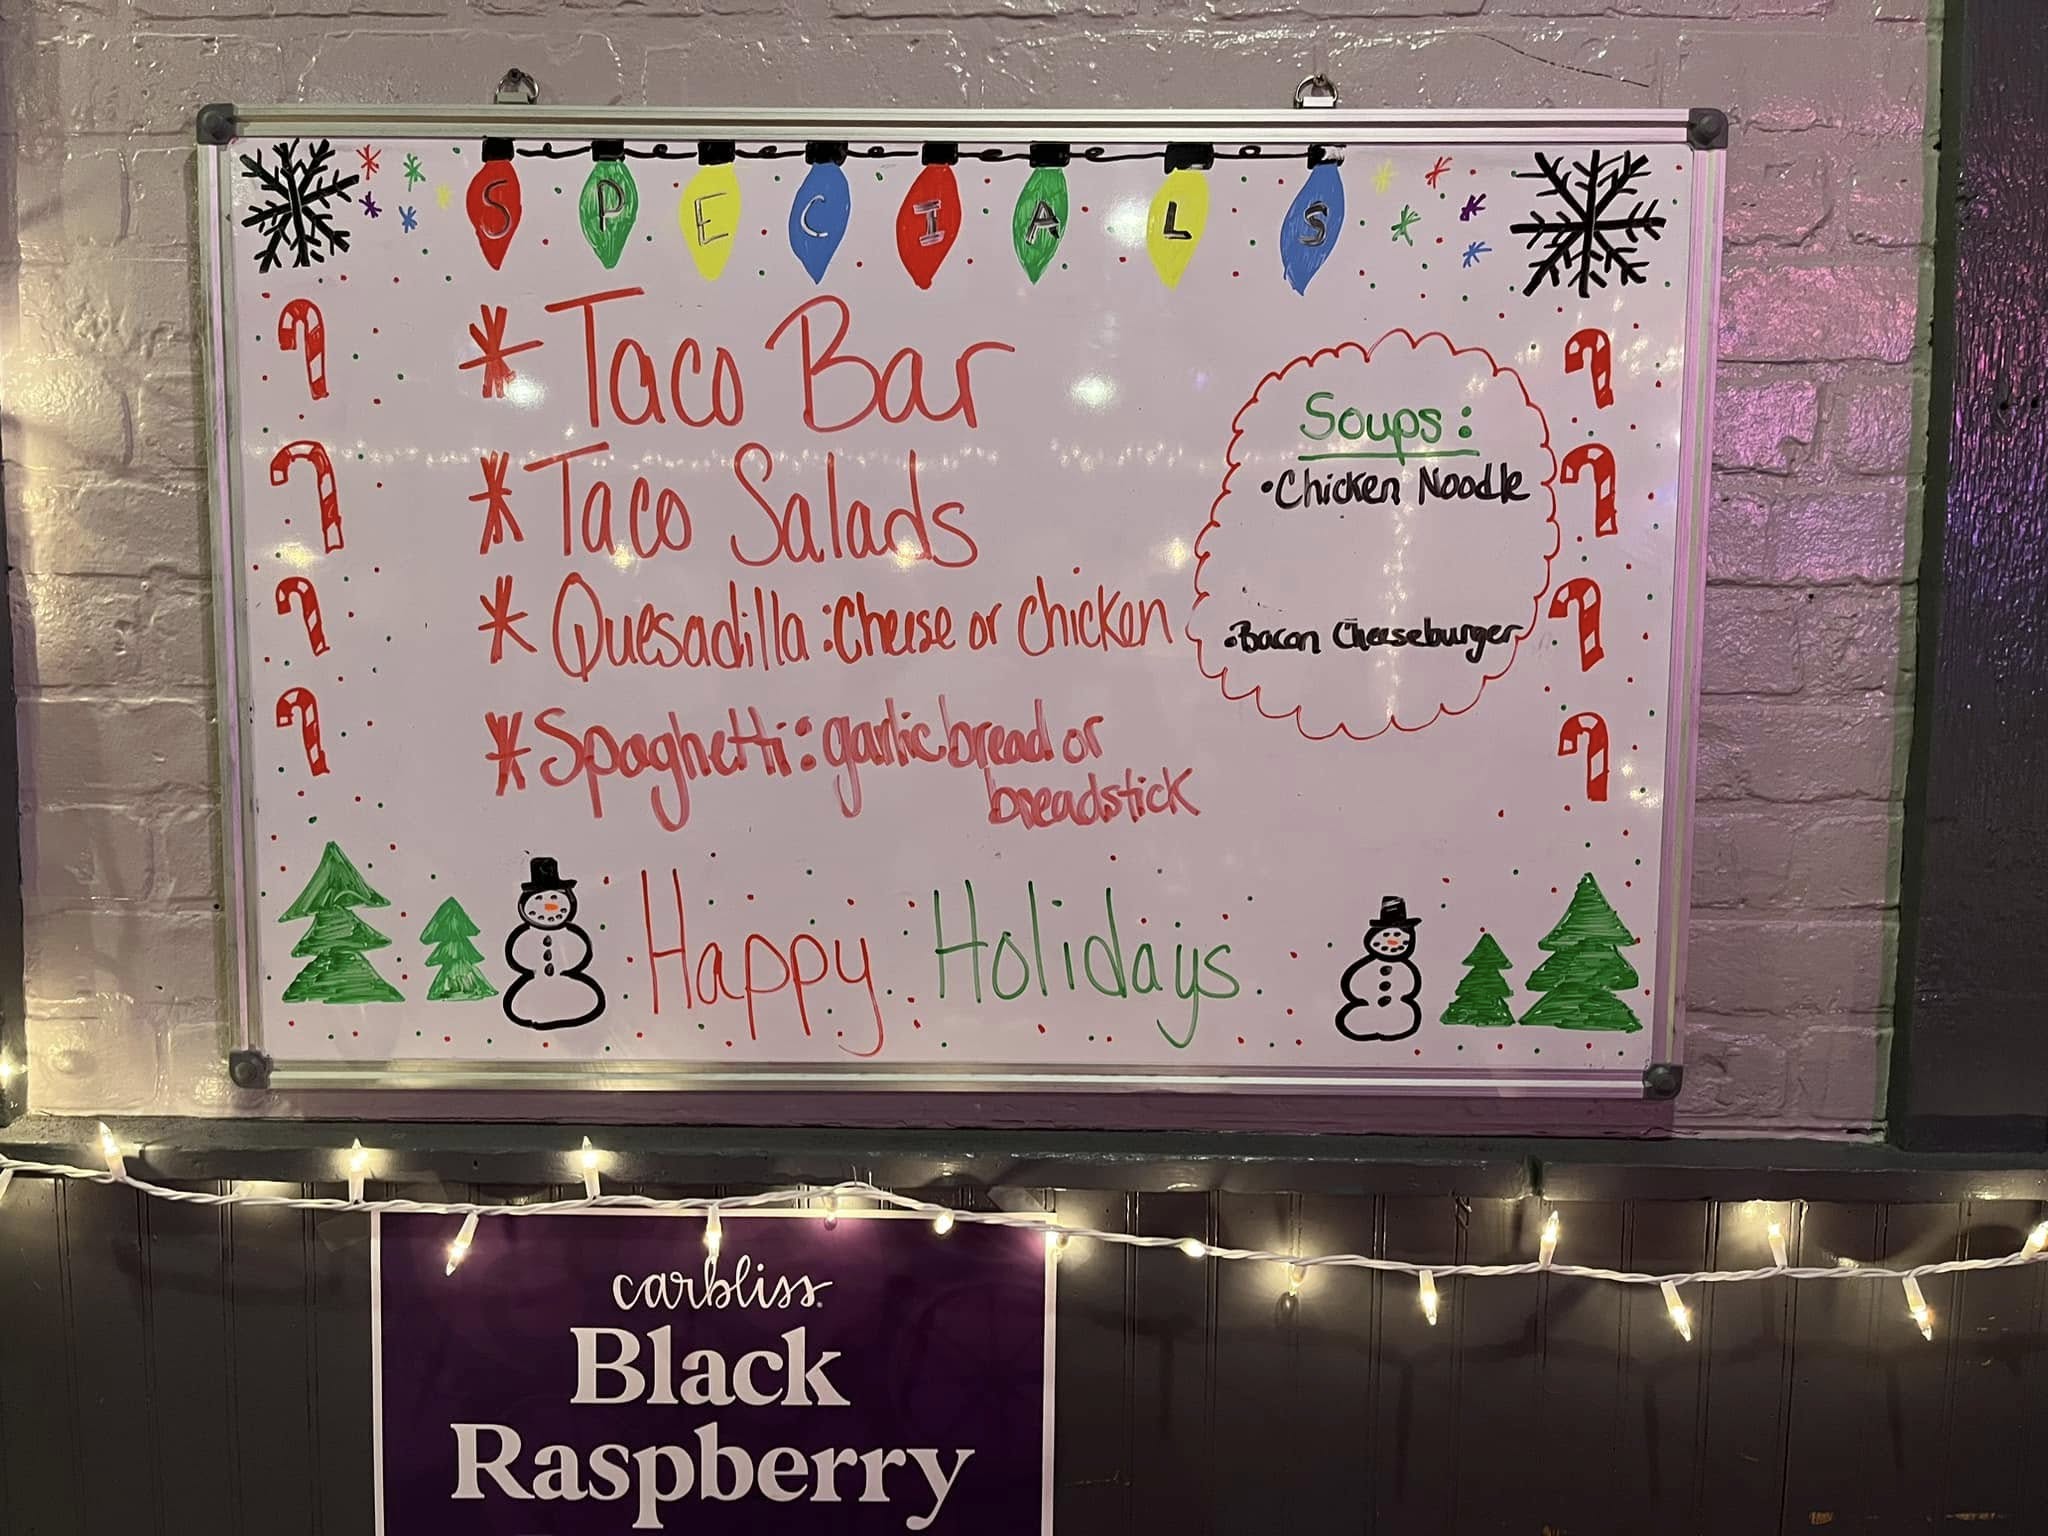 SPECIALS
* Taco Bar
* Taco Salads
* Quesadilla: Cheese or Chicken
* Spaghetti: garlic bread or
breadstick
Soups:
• Chicken Noodle
• Bacon Cheeseburger
Happy Holidays
carbliss
Black
Raspberry